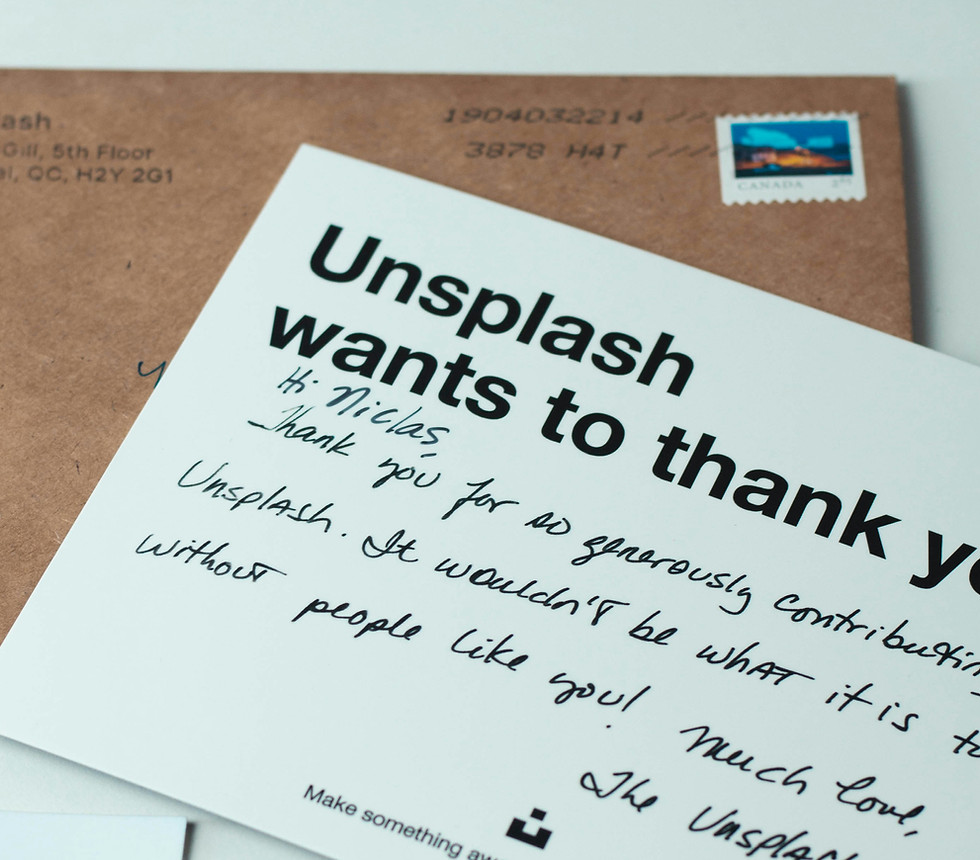 ash
Gill, 5th Floor
al, QC, H2Y 2G1
1904032214
3878 H4T
CANADA
Unsplash
wants to thank yo
Hi Niclas,
Thank you for so generously contributin
Unsplash. It wouldn't be what it is to
without people like you!
Much love,
The Unsplash
Make something aw